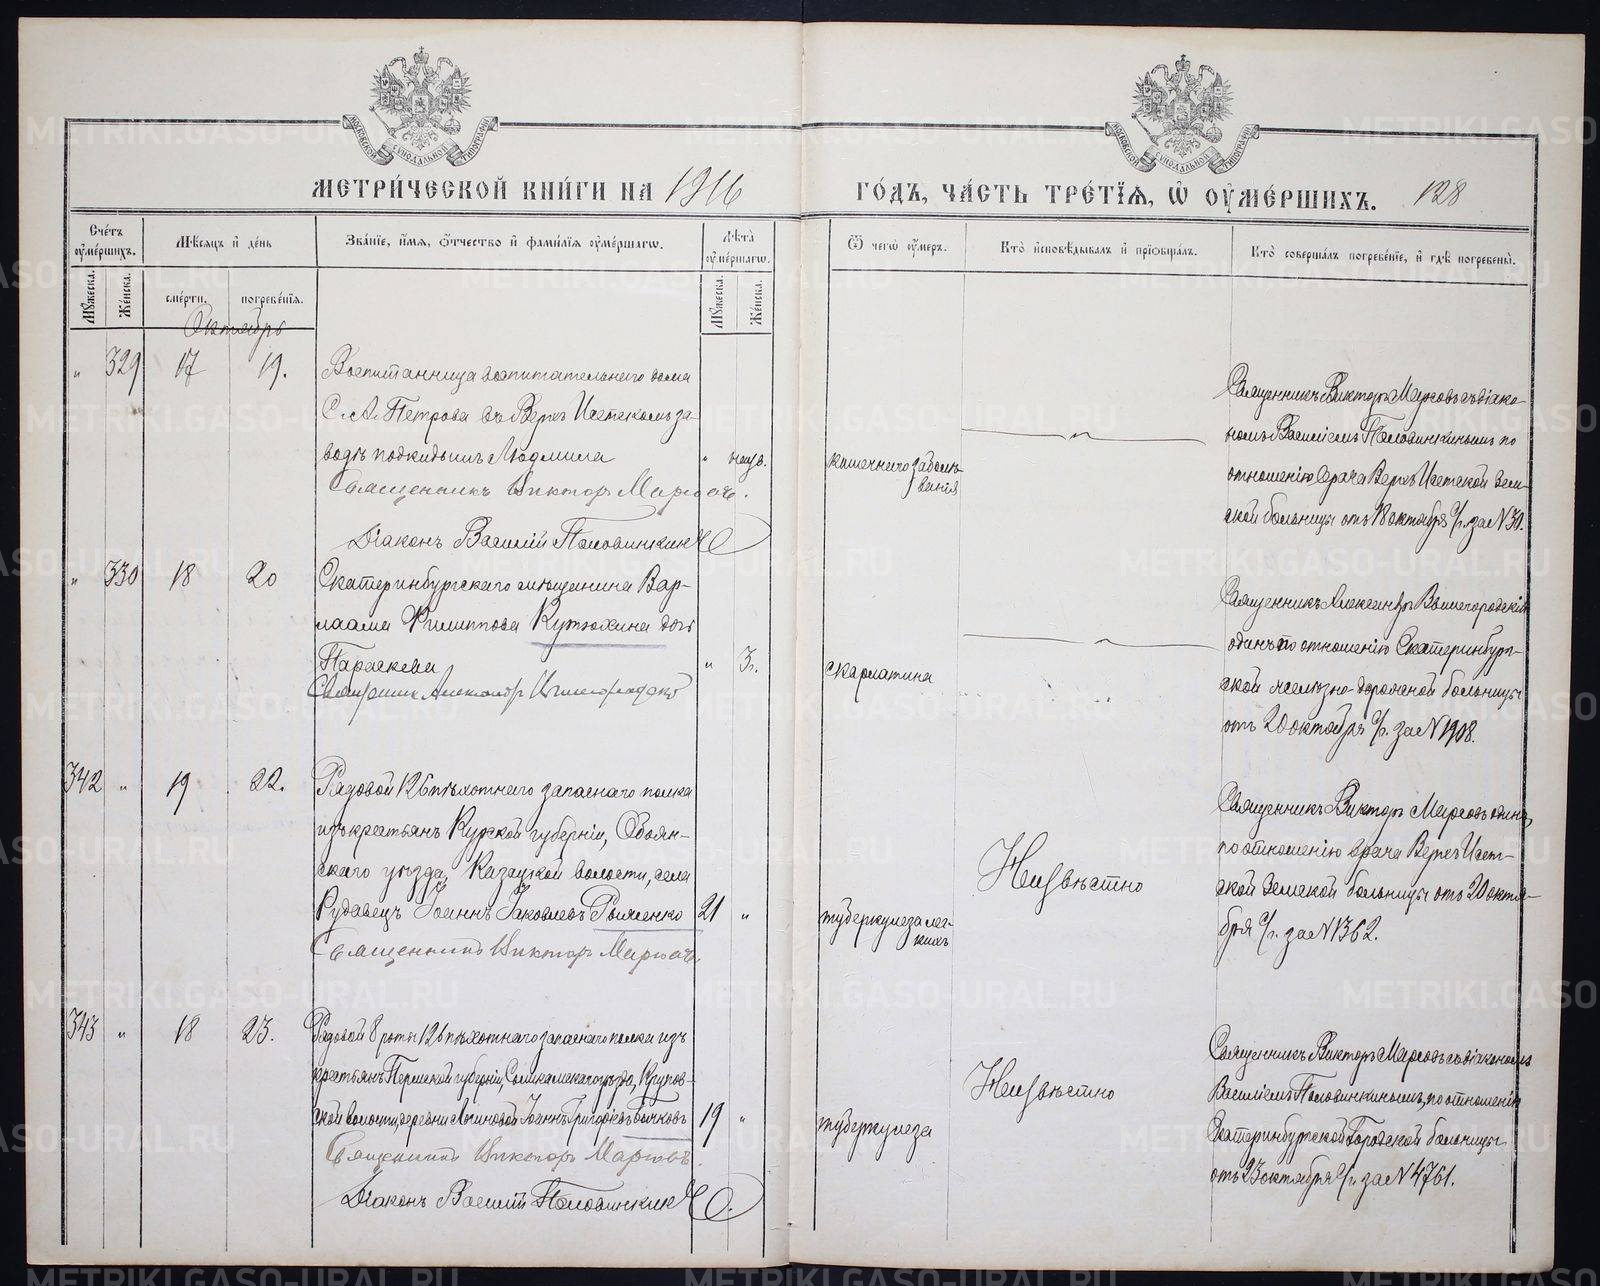 МОСКОВСКОЙ СѴНОДАЛЬНОЙ ТИПОГРАФІИ
МОСКОВСКОЙ СѴНОДАЛЬНОЙ ТИПОГРАФІИ
МЕТРИ́ЧЕСКОЙ КНИ́ГИ НА 1916
ГО́ДЪ, ЧА́СТЬ ТРЕ́ТЇѦ, Ѡ҆ ОУ҆МЕ́РШИХЪ. 128
Сче́тъ оу҆ме́ршихъ.
Мѣ́сѧцъ и҆ де́нь
Зва́нїе, и҆́мѧ, ѻ҆́тчество и҆ фами́лїѧ оу҆ме́ршагѡ.
Лѣ́та оу҆ме́ршагѡ.
Ѿ чегѡ̀ оу҆́меръ.
Кто̀ и҆сповѣ́дывалъ и҆ прїѡбща́лъ.
Кто̀ соверша́лъ погребе́нїе, и҆ гдѣ̀ погребены̀.
Мꙋ́жеска.
Же́нска.
сме́рти.
погребе́нїѧ.
Мꙋ́жеска.
Же́нска.
Октябрь
" 329 17 19.
Воспитанница воспитательнаго дома
С. А. Петрова въ Верхъ Исетскомъ за-
водѣ подкидышъ Людмила
" неиз.
Священникъ Викторъ Марковъ.
Діаконъ Василій Половинкинъ
кишечнаго заболѣ-
ванія
Священникъ Викторъ Марковъ съ діако-
номъ Василіемъ Половинкинымъ по
отношенію врача Верхъ Исетской Зем-
ской больницы отъ 18 октября с/г. за № 30.
" 330 18 20
Екатеринбургскаго мѣщанина Вар-
лаама Филиппова Кутюхина дочь
Параскева
" 3.
Священник Александр Вышегородскій
скарлатина
Священникъ Александръ Вышегородскій
одинъ по отношенію Екатеринбург-
ской желѣзно-дорожной больницы
отъ 20 октября с/г. за № 1908.
342 " 19 22.
Рядовой 126 пѣхотнаго запаснаго полка
изъ крестьянъ Курской губерніи, Обоян-
скаго уѣзда, Казацкой волости, села
Рудавецъ Іоаннъ Іаковлевъ Рыженко
21 "
Священникъ Викторъ Марковъ.
туберкулеза лег-
кихъ
Неизвѣстно
Священникъ Викторъ Марковъ одинъ,
по отношенію врача Верхъ Исет-
ской Земской больницы отъ 20 октя-
бря с/г. за № 1362.
343 " 18 23.
Рядовой 8 роты 126 пѣхотнаго запаснаго полка изъ
крестьянъ Пермской губерніи, Соликамскаго уѣзда,
ской волости, деревни Іоаннъ Григорьевъ Бачковъ
19 "
Священникъ Викторъ Марковъ.
Діаконъ Василій Половинкинъ
туберкулеза
Неизвѣстно
Священникъ Викторъ Марковъ съ діакономъ
Василіемъ Половинкинымъ, по отношенію
Екатеринбургской Городской больницы
отъ 23 октября с/г. за № 4761.
METRIKI.GASO-URAL.RU